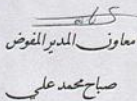 معاون المدير المفوض
صباح محمد علي